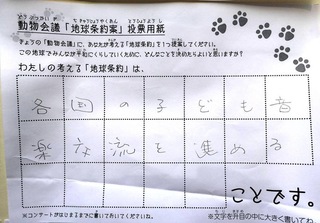 動物会議「地球条約案」投票用紙
きょうの「動物会議」に、あなたが考える「地球条約」を1つ提案してください。
この地球でみんなが平和にくらしていくために、どんなことを決めたらよいと思いますか?
わたしの考える「地球条約」は、
各国の子ども音
楽交流を進める
ことです。
※コンサートがはじまるまでに書いておいてくださいね。
※文字を升目の中に大きく書いてね